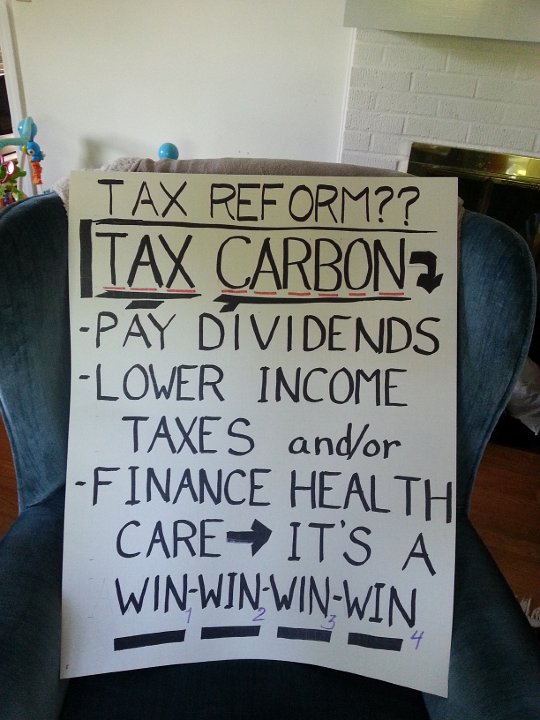 TAX REFORM??
TAX CARBON
-PAY DIVIDENDS
-LOWER INCOME
TAXES and/or
-FINANCE HEALTH
CARE → IT'S A
WIN-WIN-WIN-WIN
1 2 3 4